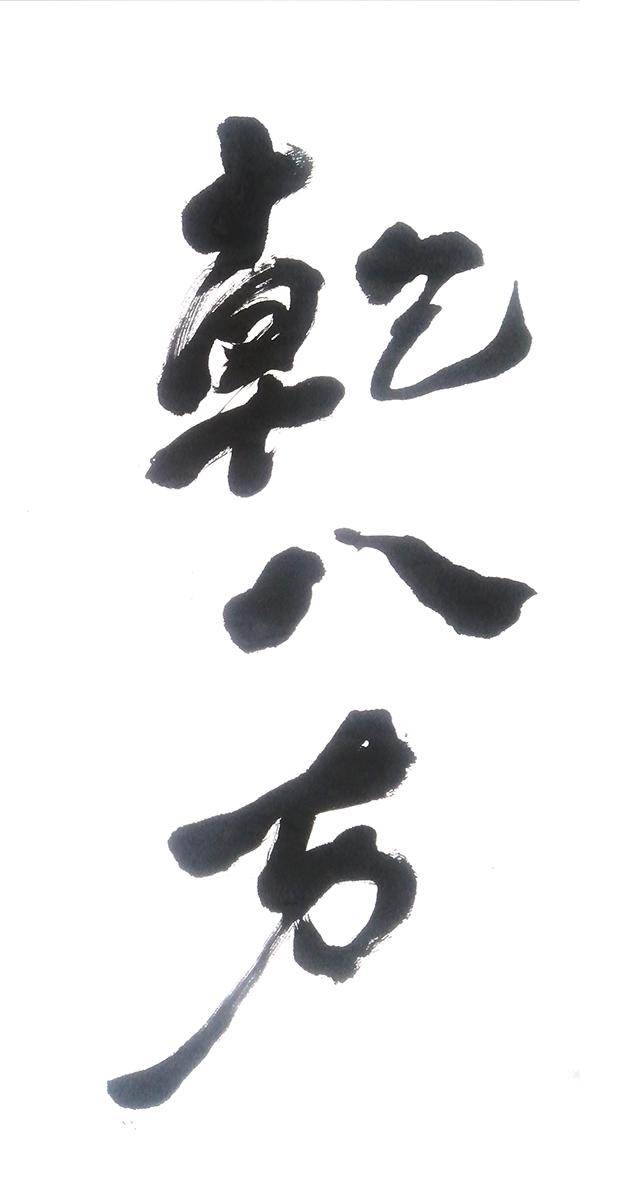 乾八方